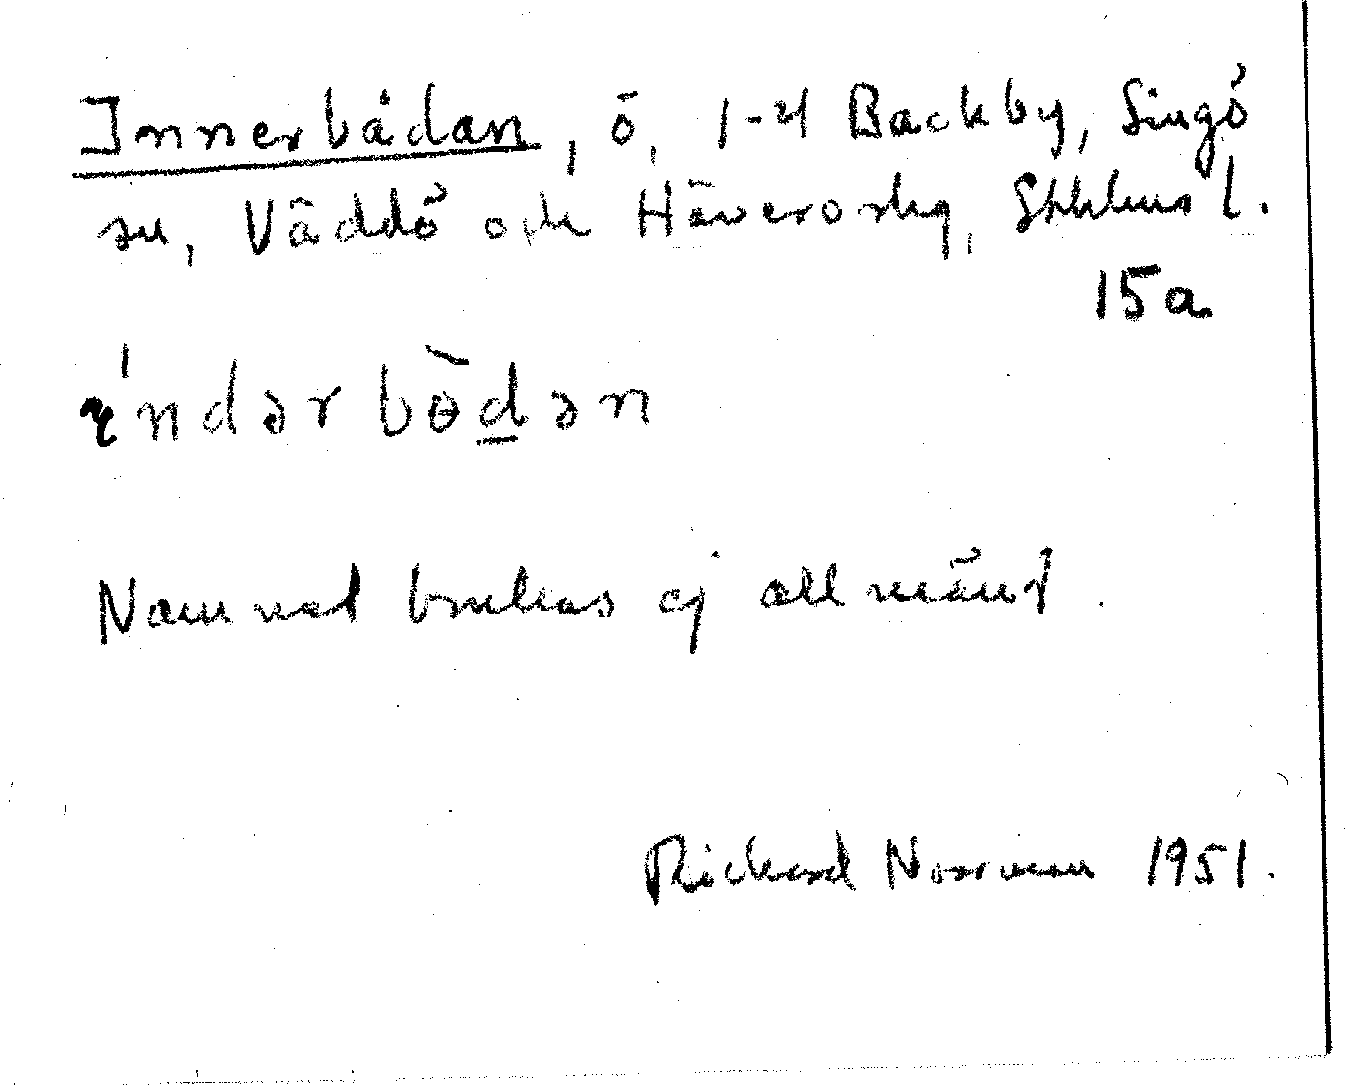 Innerbådan, ö, 1-4 Backby, Singö
sn, Väddö och Häverö skg, Sthlms l.
15a
índərbɵ̀dən
Namnet brukas ej allmänt.
Rickard Norrman 1951.